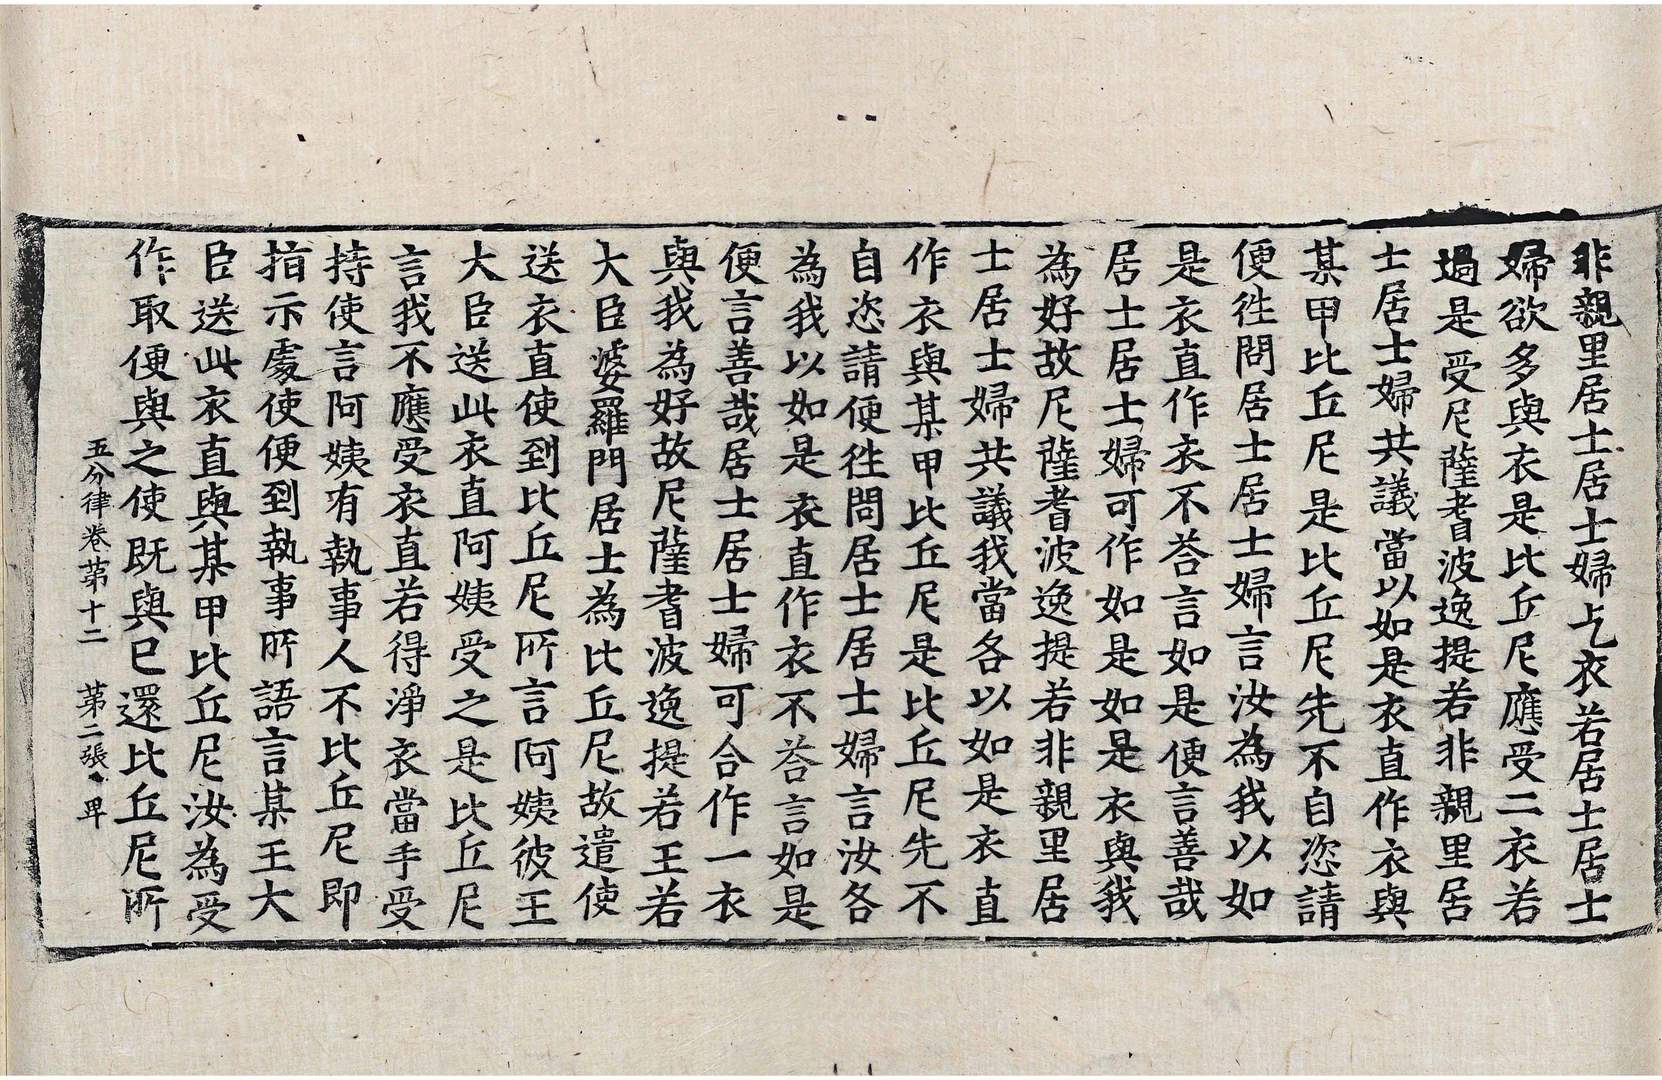 非親里居士居士婦乞衣若居士居士
婦欲多與衣是比丘尼應受二衣若
過是受尼薩耆波逸提若非親里居
士居士婦共議當以如是衣直作衣與
某甲比丘尼是比丘尼先不自恣請
便往問居士居士婦言汝為我以如
是衣直作衣不荅言如是便言善哉
居士居士婦可作如是如是衣與我
為好故尼薩耆波逸提若非親里居
士居士婦共議我當各以如是衣直
作衣與某甲比丘尼是比丘尼先不
自恣請便往問居士居士婦言汝各
為我以如是衣直作衣不荅言如是
便言善哉居士居士婦可合作一衣
與我為好故尼薩耆波逸提若王若
大臣婆羅門居士為比丘尼故遣使
送衣直使到比丘尼所言阿姨彼王
大臣送此衣直阿姨受之是比丘尼
言我不應受衣直若得淨衣當手受
持使言阿姨有執事人不比丘尼即
指示處使便到執事所語言某王大
臣送此衣直與某甲比丘尼汝為受
作取便與之使既與已還比丘尼所
五分律卷苐十二 苐二張 卑